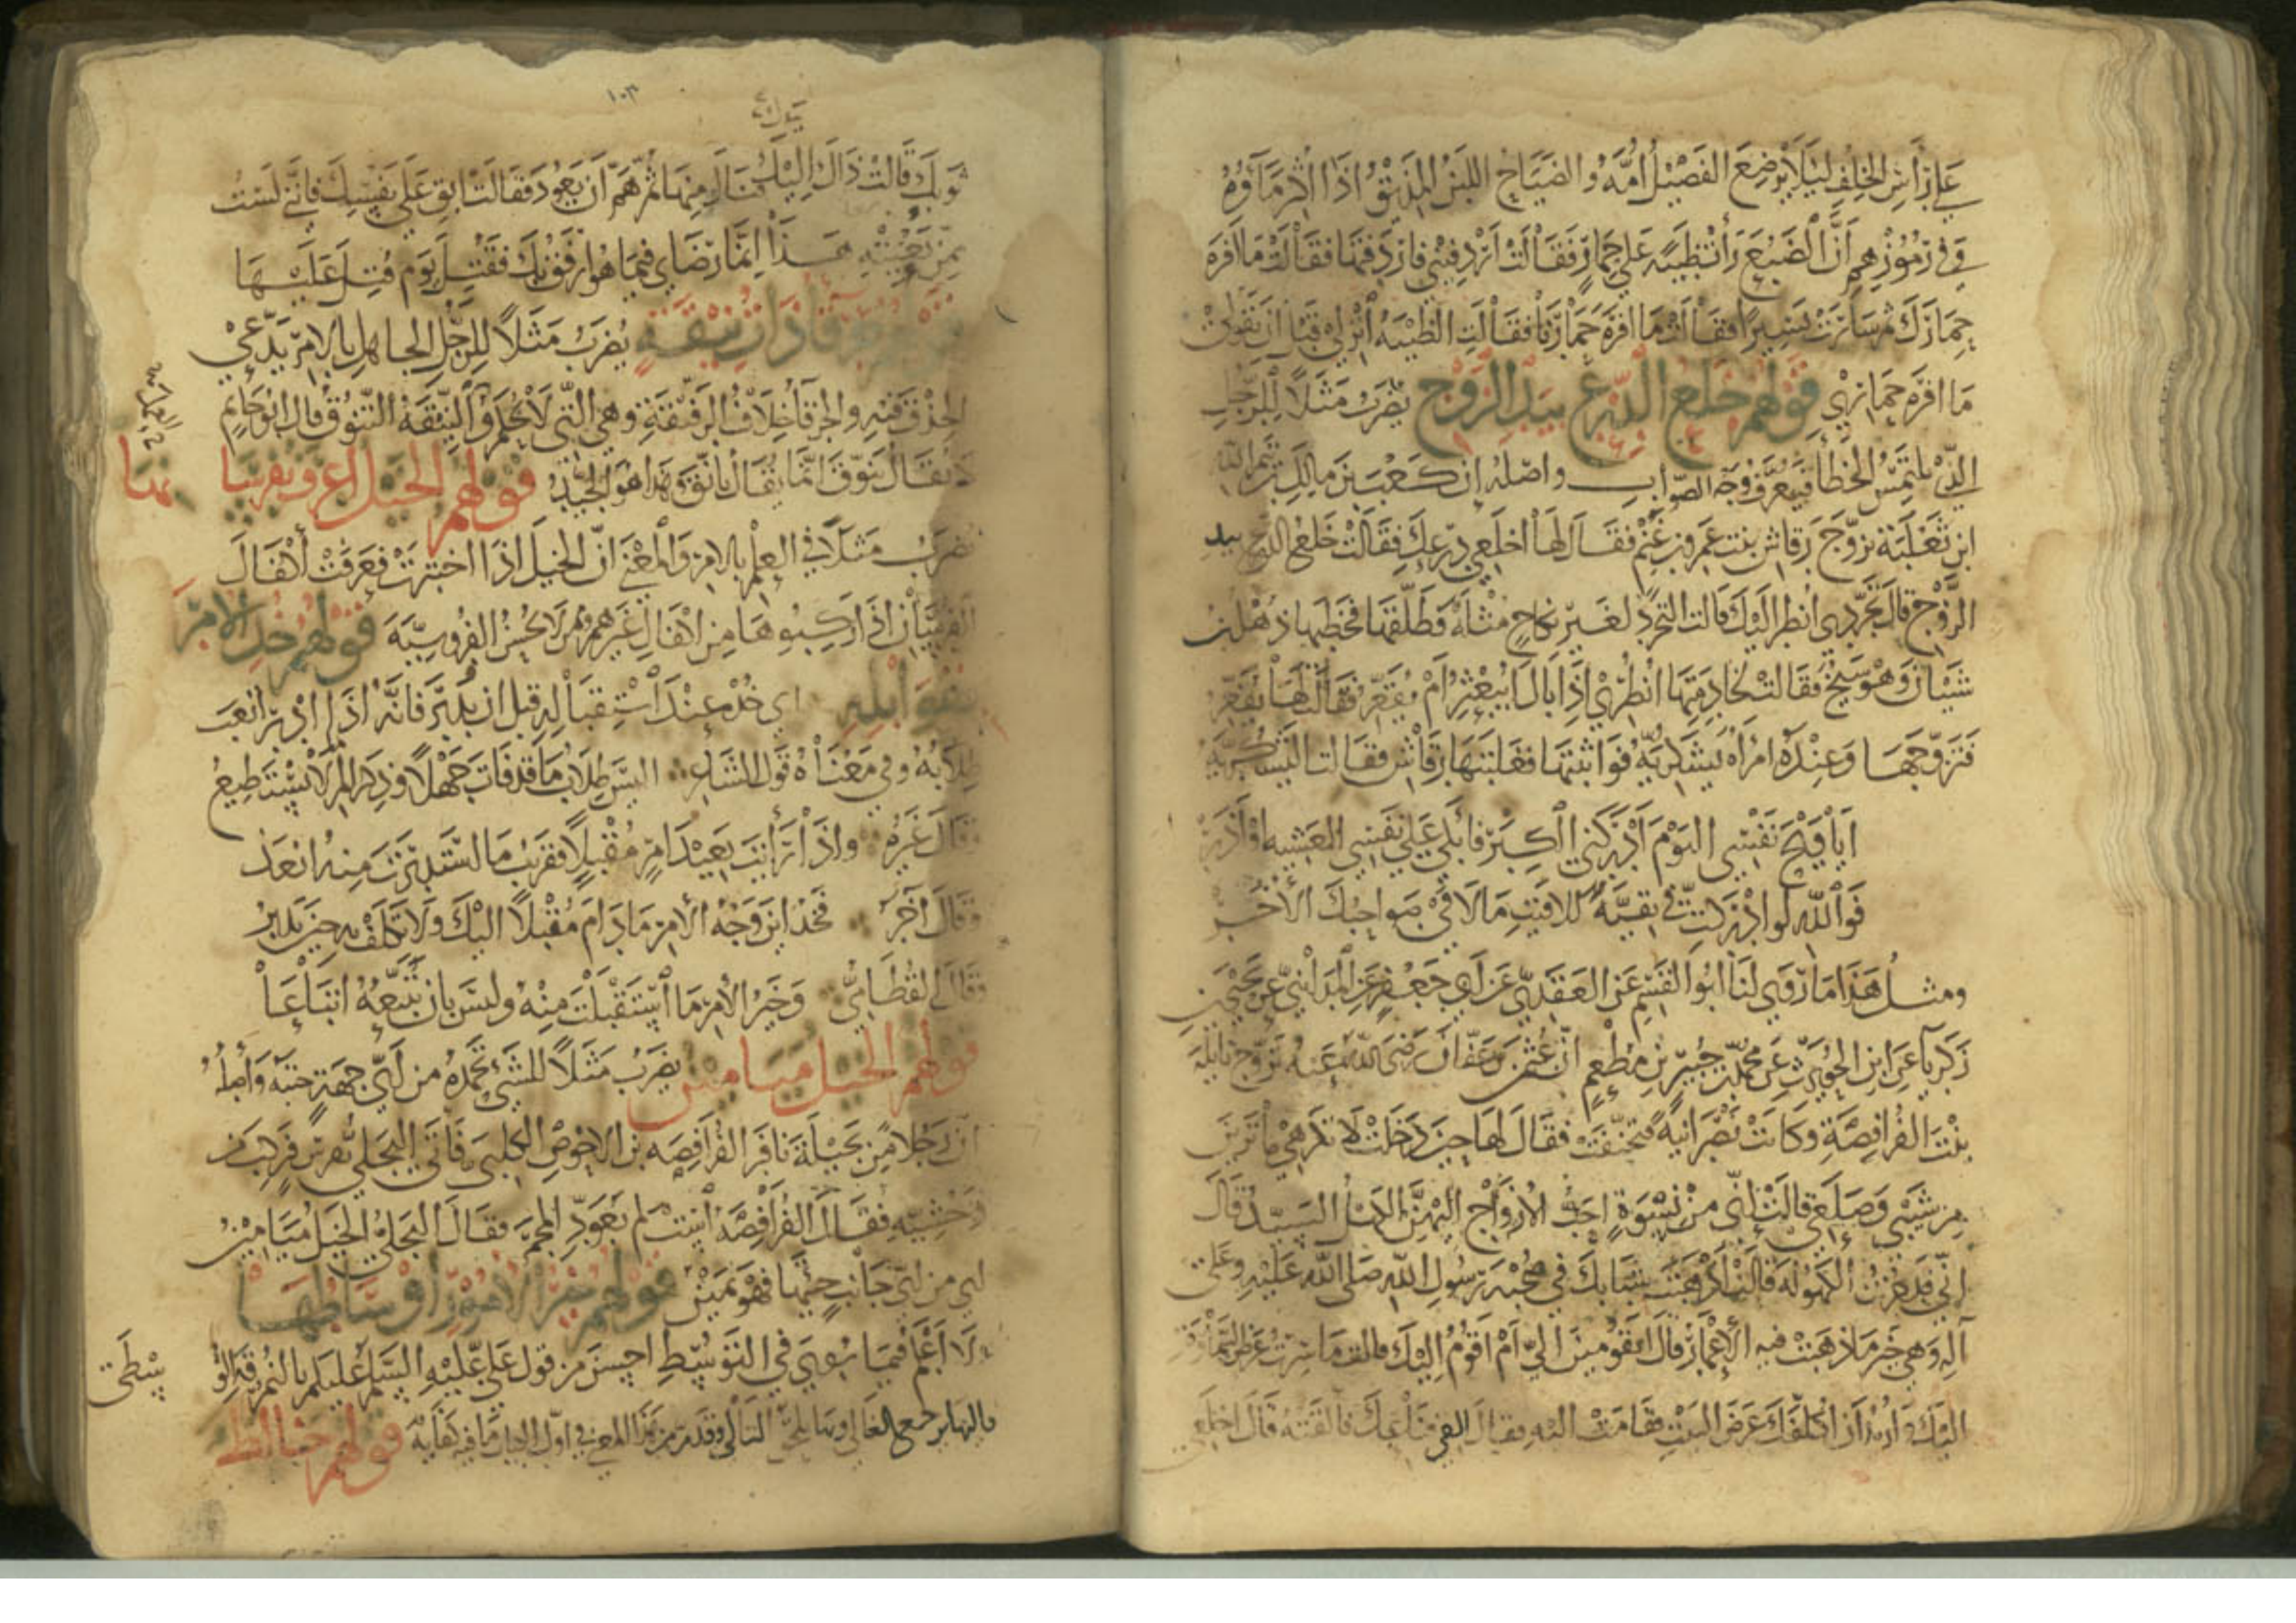 على رأس الخلف ليلا يرضع الفصيل أمه والضياح اللبن المذيق اذا اكثر ماؤه
وفي رموزهم أن الضبع رأت ظبية على حمار فقالت أردفيني فاردفتها فقالت ما افره
حمارك ثم سارت يسيرا فقالت ما افره حمارنا فقالت الظبية أنزلي قبل ان تقولي
ما افره حماري قولهم خلع الدرع بيد الزوج يضرب مثلا للرجل
الذي يلتمس الخطأ فيعرف وجه الصواب واصله ان كعب بن مالك بن تيم الله
ابن ثعلبة تزوج رقاش بنت عمرو بن غنم فقال لها اخلعي درعك فقالت خلع الدرع بيد
الزوج قال تجردي انظر اليك قالت التجرد لغير نكاح مثله فطلقها فخطبها ذهل بن
شيبان وهو شيخ فقالت لخادمتها انظري اذا بال ايبعثر أم يقعر فقالت لها يقعر
فتزوجها وعنده امرأة يشكرية فواثبتها فغلبتها رقاش فقالت اليشكرية
أيا ويح نفسي اليوم أدركني الكبر فابكي على نفسي العشية او أذر
فوالله لو ادركت في بقية للاقيت ما لاقى صواحبك الأخر
ومثل هذا ما روى لنا أبو القسم عن العقدي عن أبي جعفر عن المدائني عن يحيى بن
زكريا عن ابن الحويرث عن محمد بن جبير بن مطعم ان عثمن بن عفان رضي الله عنه تزوج نايلة
بنت الفرافصة وكانت نصرانية فتحنفت فقال لها حين دخلت لا تكرهي ما ترين
من شيبي وصلعي قالت إني من نسوة احب الازواج اليهن الكهل السيد قال
اني قد جزت الكهولة قالت اذهبت شبابك في صحبة رسول الله صلى الله عليه وعلى
آله وهي خير ما ذهبت فيه الاعمار قال اتقومين الي أم اقوم إليك قالت ما سرت عرض السماوة
اليك وأريد أن اكلفك عرض البيت فقامت اليه فقال القي قناعك فالقته قال اخلعي
١٠٣
ثوبك قالت ذاك اليك فنال منها ثم هم أن يعود فقالت ابق على نفسك فإني لست
ممن يعجبه هذا إنما رضاي فيما هو ارفق بك فقتل يوم قتل عليها
قولهم خرقاء ذات نيقة يضرب مثلا للرجل الجاهل بالامر يدعي
الحذق فيه والخرقا خلاف الرفيقة وهي التي لا تحكم العمل والنيقة التنوق قال ابو حاتم
لا يقال تنوق انما يقال تانق وهذا هو الجيد قولهم الخيل اعرف بفرسانها
يضرب مثلا في العلم بالامر والمعنى ان الخيل اذا اختبرت فعرفت أكفال
الفرسان اذا ركبوها من الاكفال غيرهم ومن لا يحسن الفروسية قولهم خذ الامر
بقوابله اي خذه عند استقباله قبل ان يدبر فانه اذا ادبر اتعب
طلابه وفي معناه قول الشاعر اليس طلاب ما قد فات جهلا وذكر المرء ما لا يستطيع
وقال غيره واذا رأيت بعيد امر مقبلا فقريب ما استدبرت منه ابعد
وقال آخر فخذ ابن وجه الأمر ما دام مقبلا اليك ولا تكلف به حين يدبر
وقال القطامي وخير الأمر ما استقبلت منه وليس بان تتبعه اتباعا
قولهم الخيل ميامين يضرب مثلا للشيء تحمده من أي جهة جئته وأصله
ان رجلا من بجيلة نافر الفرافصة بن الاحوص الكلبي فأتى البجلي بفرس فركب من
وحشيه فقال الفرافصة است لم تعود المجمر فقال البجلي الخيل ميامين
اي من اي جانب جئتها فهو يمين قولهم خير الأمور أوساطها
ولا أعلم فيما روي في التوسط احسن من قول علي عليه السلم عليكم بالنمرقة الوسطى
فاليها يرجع الغالي وبها يلحق التالي وقد مر من هذا المعنى في اول الكتاب ما فيه كفاية قولهم